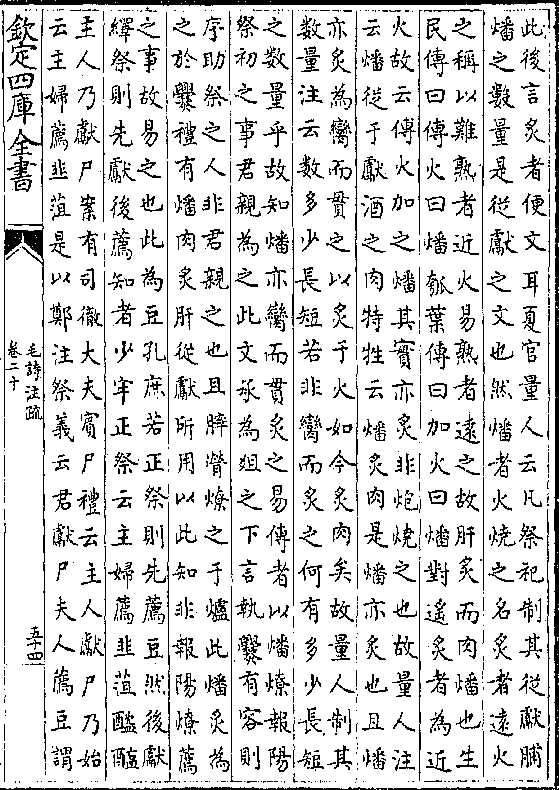 此後言炙者便文耳夏官量人云凡祭祀制其從獻脯
燔之數量是從獻之文也然燔者火燒之名炙者遠火
之稱以難熟者近火易熟者遠之故肝炙而肉燔也生
民傳曰傳火曰燔瓠葉傳曰加火曰燔對遙炙者為近
火故云傳火加之燔其實亦炙非炮燒之也故量人注
云燔從于獻酒之肉特牲云燔炙肉是燔亦炙也且燔
亦炙為臠而貫之以炙于火如今炙肉矣故量人制其
數量注云數多少長短若非臠而炙之何有多少長短
之數量乎故知燔亦臠而貫炙之易傳者以燔燎報陽
祭初之事君親為之此文承為俎之下言執爨有容則
序助祭之人非君親之也且膟膋燎之于爐此燔炙為
之於爨禮有燔肉炙肝從獻所用以此知非報陽燎薦
之事故易之也此為豆孔庶若正祭則先薦豆然後獻
繹祭則先獻後薦知者少牢正祭云主婦薦韭菹醓醢
主人乃獻尸案有司徹大夫賓尸禮云主人獻尸乃始
云主婦薦韭菹是以鄭注祭義云君獻尸夫人薦豆謂
欽定四庫全書
毛詩注疏
卷二十
五十四